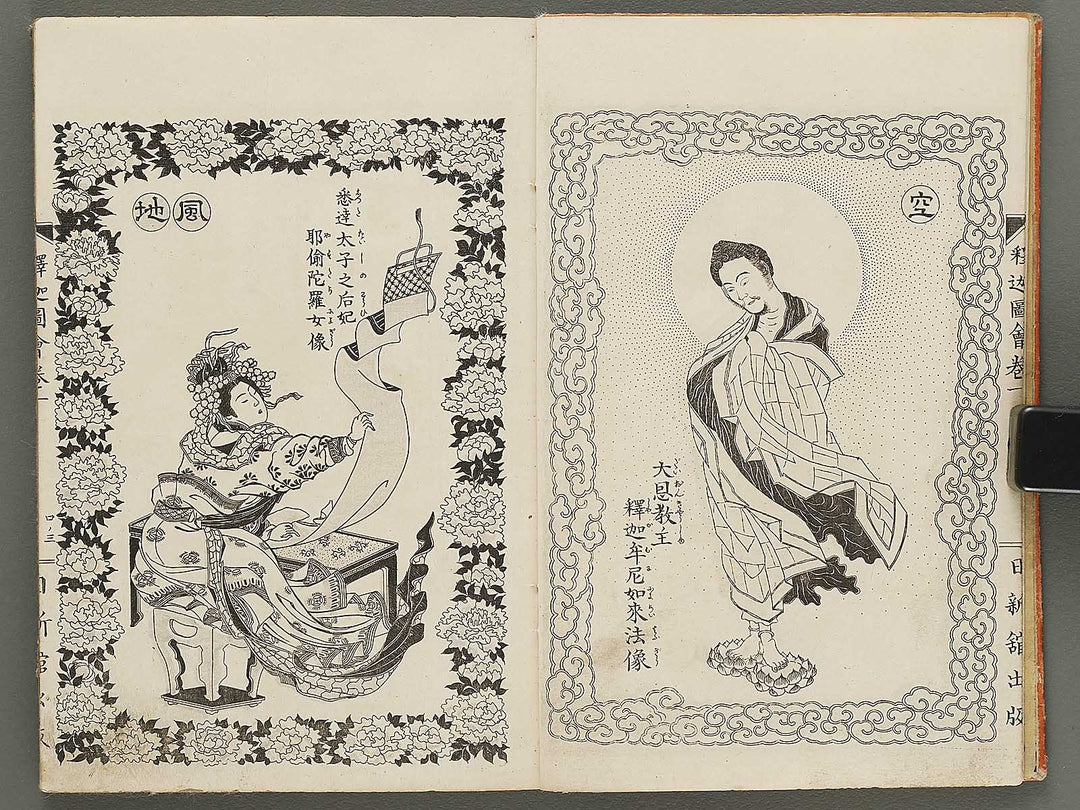 空
大恩教王
釋迦牟尼如來法像
釈迦圖會卷一
日新館出版
風
地
悉達太子之后妃
耶偷陀羅女像
釋迦圖會卷一
四三